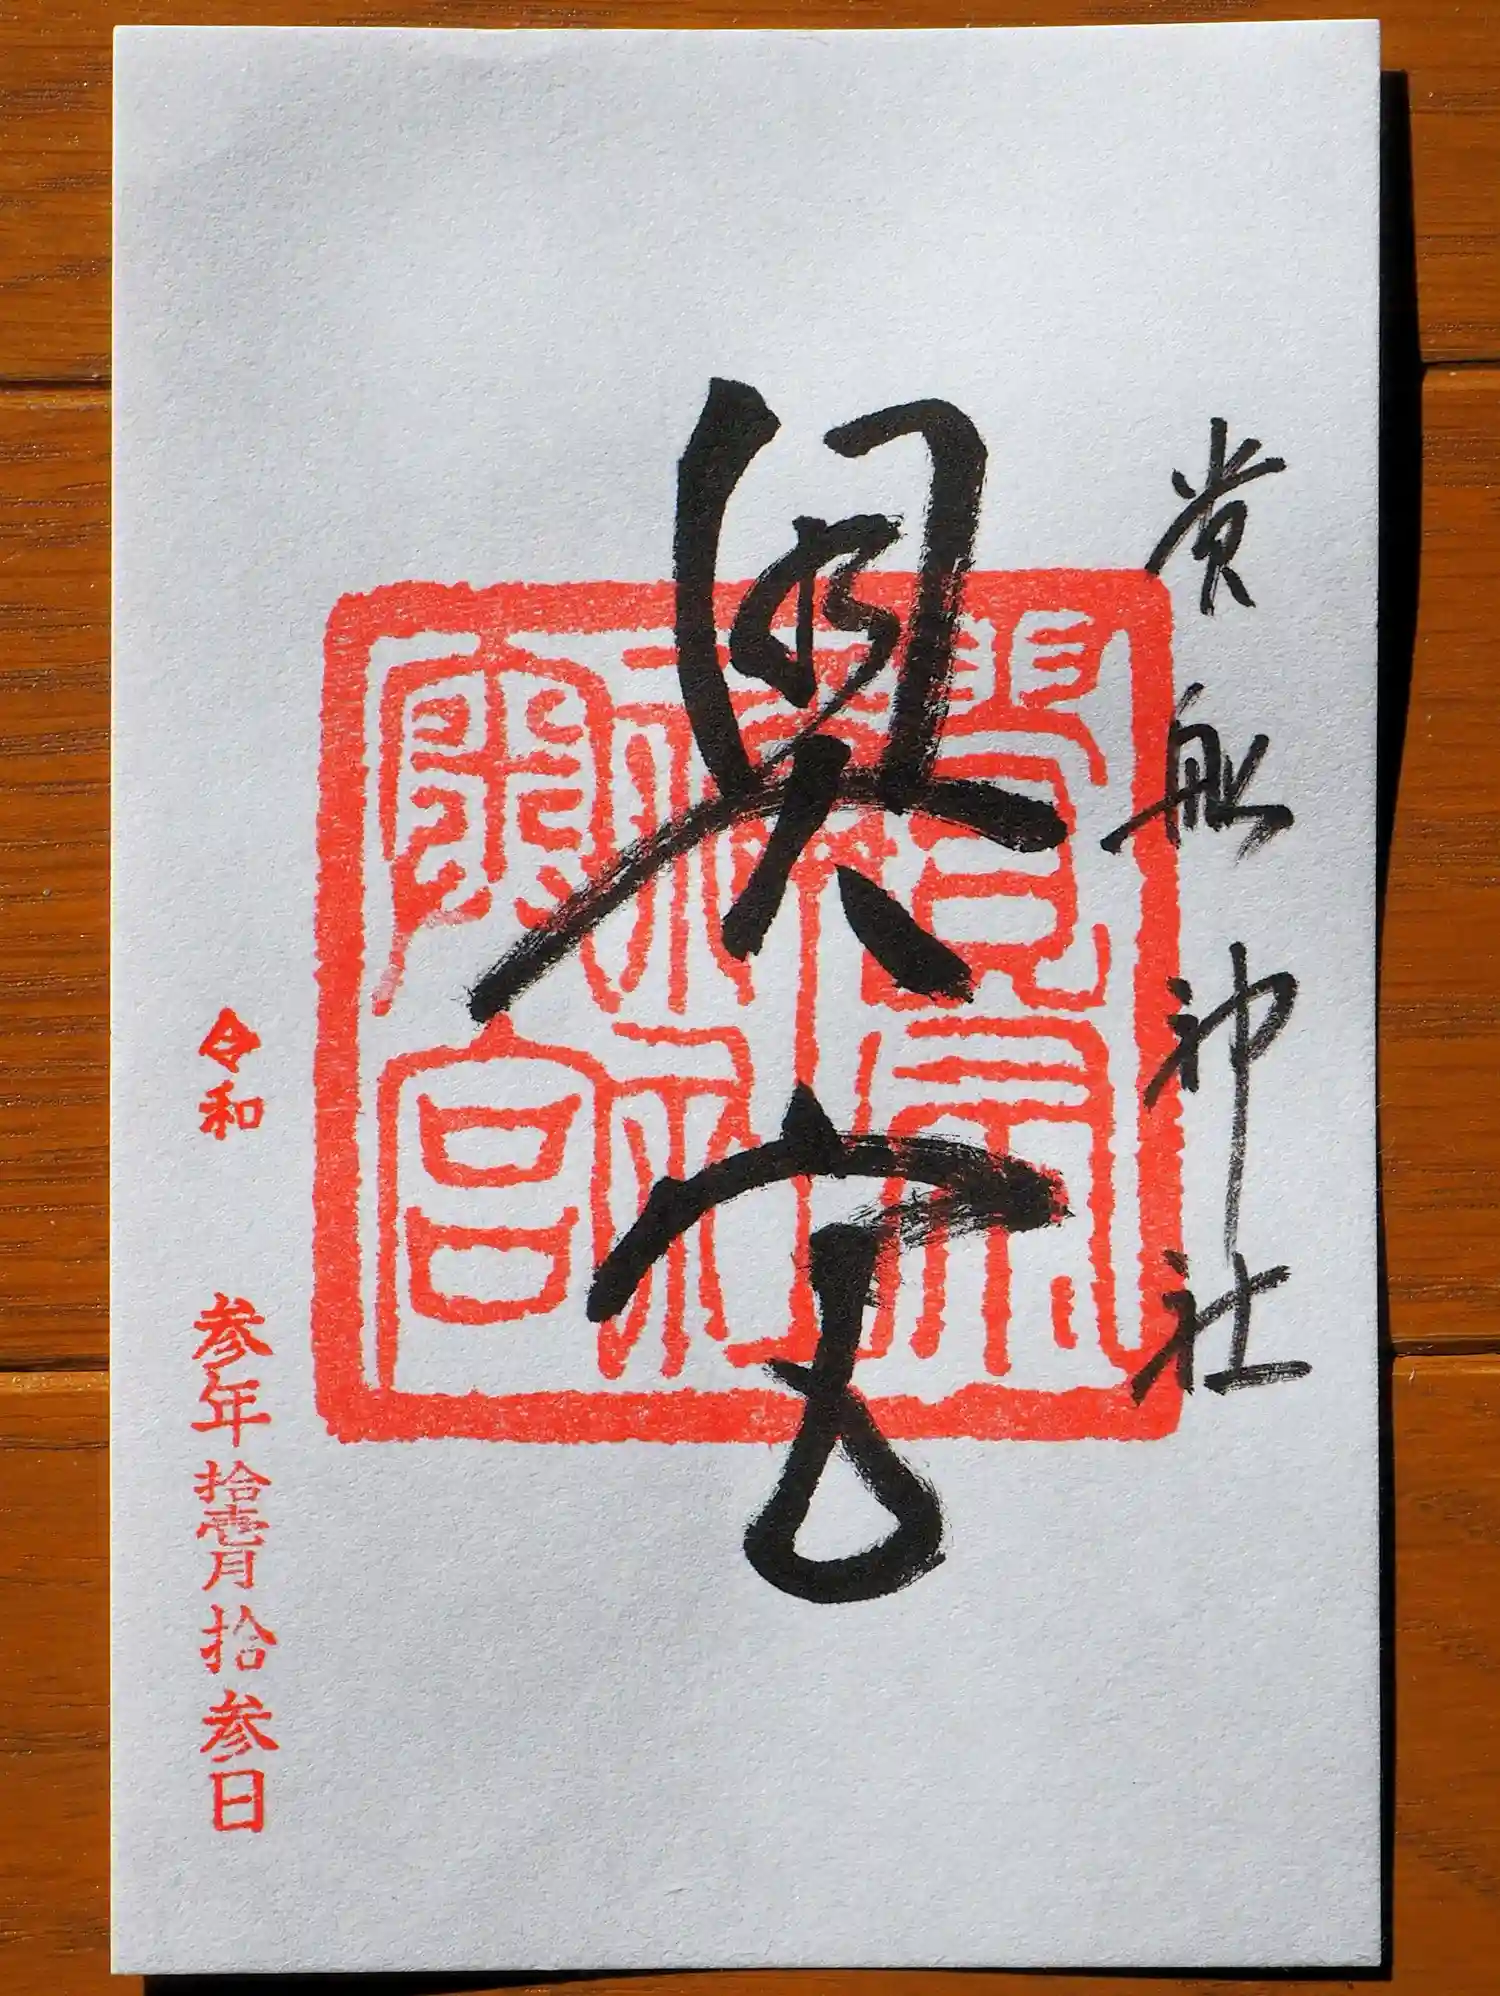 貴船神社
奥宮
貴布
奥宮
令和 参年拾壱月拾参日